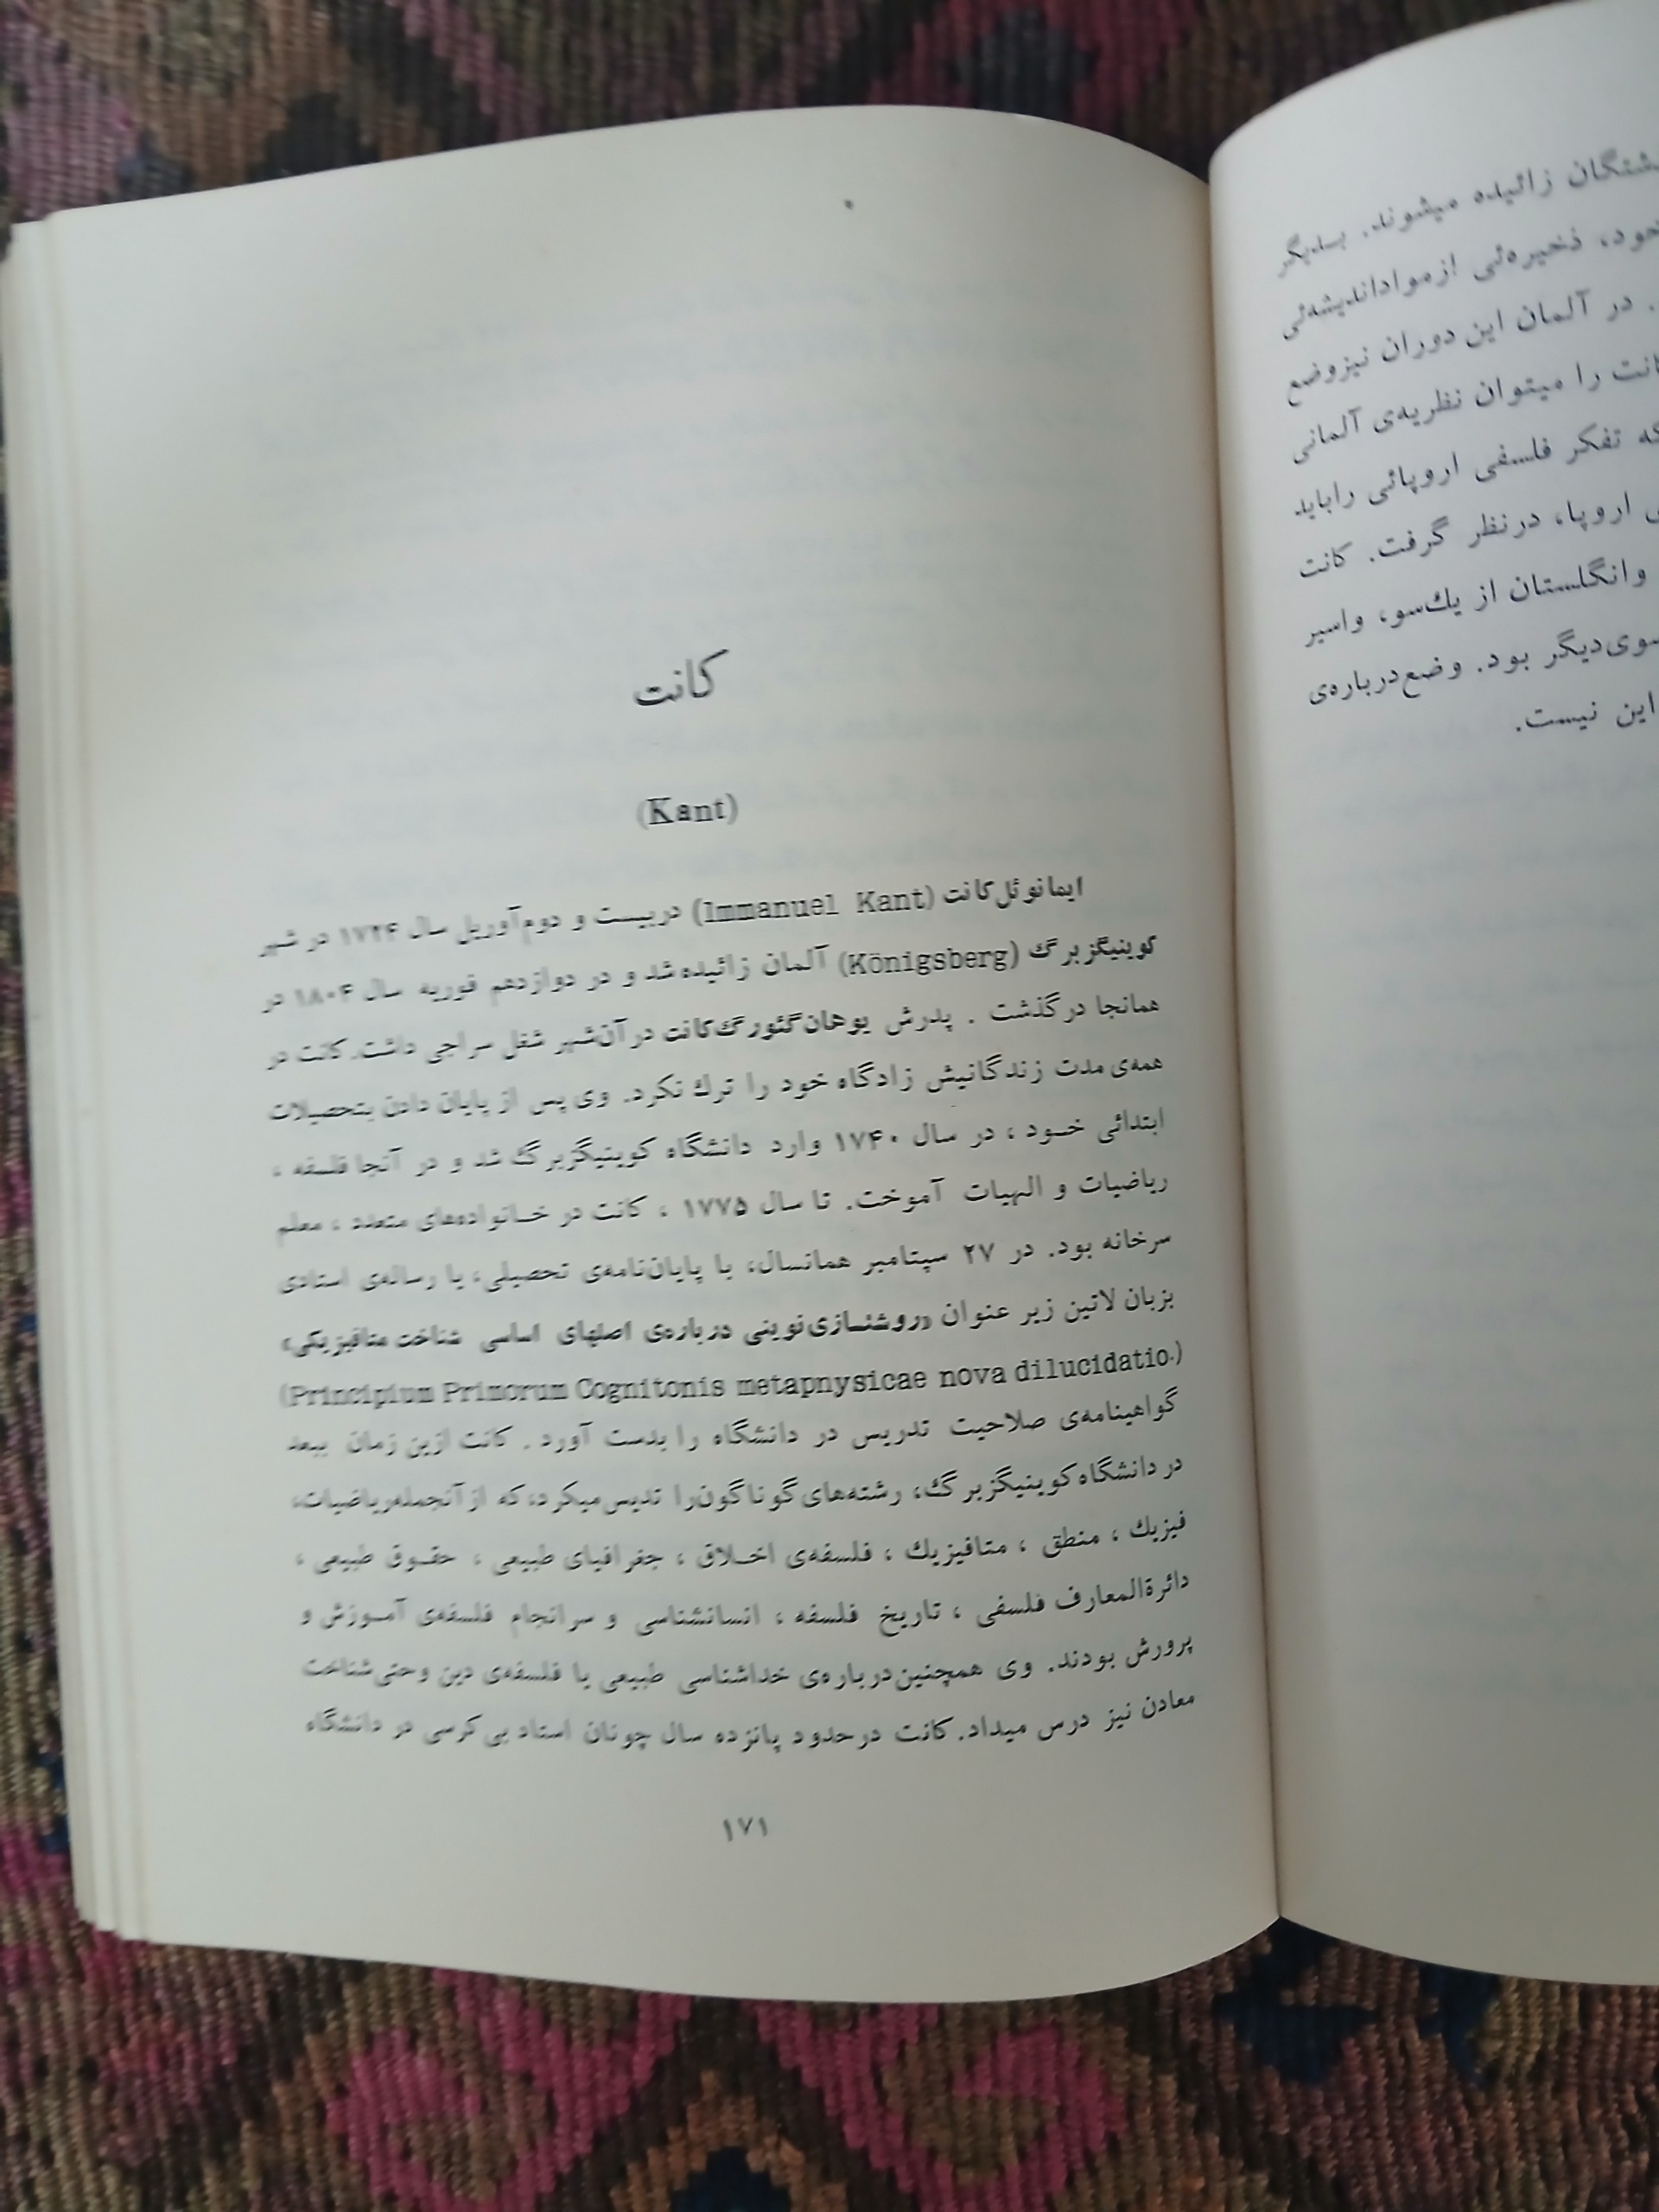 زائیده میشوند. بدیگر
خود، ذخیره‌ئی ازمواداندیشه‌ئی
. در آلمان این دوران نیزوضع
را میتوان نظریه‌ی آلمانی
تفکر فلسفی اروپائی راباید
اروپا، درنظر گرفت. کانت
وانگلستان از یك‌سو، واسیر
سوی‌دیگر بود. وضع‌درباره‌ی
این نیست.
کانت
(Kant)
ایمانوئل‌کانت (Immanuel Kant) دربیست و دوم‌آوریل سال ۱۷۲۴ در شهر
کوینیگزبرگ (Königsberg) آلمان زائیده‌شد و در دوازدهم فوریه سال ۱۸۰۴ در
همانجا درگذشت . پدرش یوهان‌گئورگ‌کانت درآن‌شهر شغل سراجی داشت. کانت در
همه‌ی مدت زندگانیش زادگاه خود را ترك نکرد. وی پس از پایان دادن بتحصیلات
ابتدائی خود ، در سال ۱۷۴۰ وارد دانشگاه کوینیگزبرگ شد و در آنجا فلسفه ،
ریاضیات و الهیات آموخت. تا سال ۱۷۷۵ ، کانت در خانواده‌های متعدد ، معلم
سرخانه بود. در ۲۷ سپتامبر همانسال، با پایان‌نامه‌ی تحصیلی، یا رساله‌ی استادی
بزبان لاتین زیر عنوان «روشنسازی‌نوینی درباره‌ی اصلهای اساسی شناخت متافیزیکی»
(Principium Primorum Cognitonis metapnysicae nova dilucidatio.)
گواهینامه‌ی صلاحیت تدریس در دانشگاه را بدست آورد . کانت ازین زمان ببعد
در دانشگاه کوینیگزبرگ، رشته‌های گوناگون‌را تدیس‌میکرد، که از آنجمله‌ریاضیات،
فیزیك ، منطق ، متافیزیك ، فلسفه‌ی اخلاق ، جغرافیای طبیعی ، حقوق طبیعی ،
دائرةالمعارف فلسفی ، تاریخ فلسفه ، انسانشناسی و سرانجام فلسفه‌ی آموزش و
پرورش بودند. وی همچنین‌درباره‌ی خداشناسی طبیعی یا فلسفه‌ی دین وحتی‌شناخت
معادن نیز درس میداد. کانت درحدود پانزده سال چونان استاد بی کرسی در دانشگاه
۱۷۱